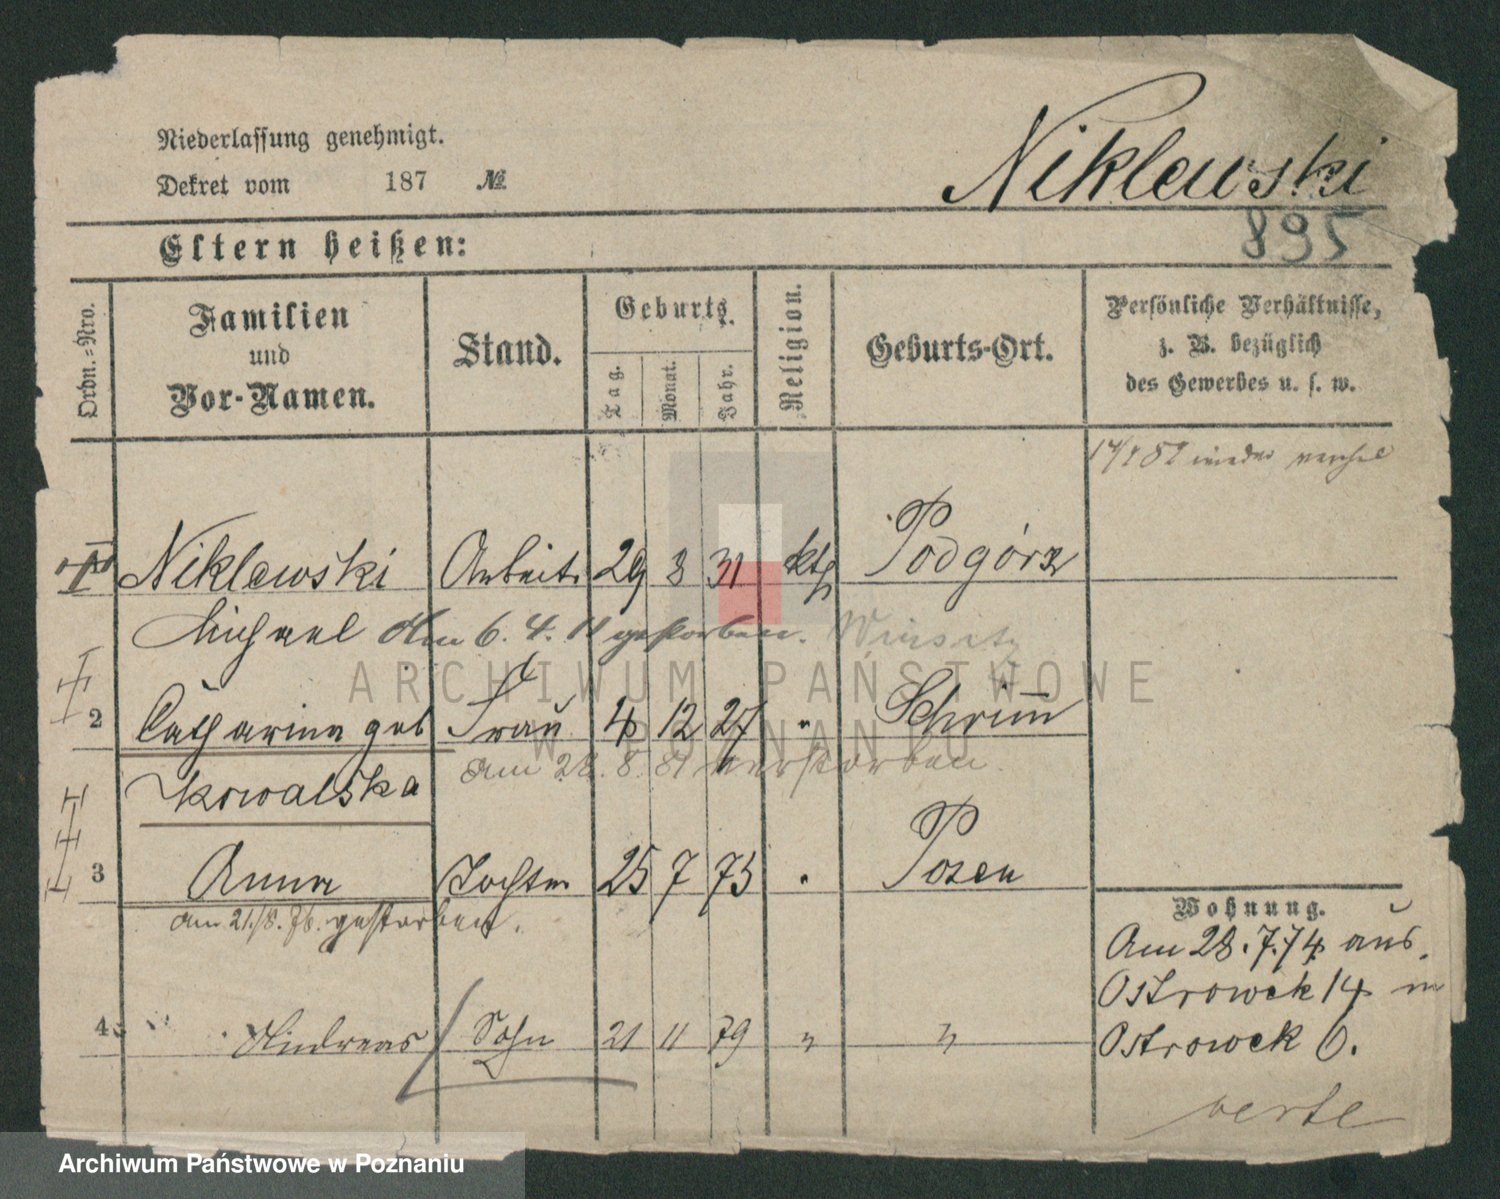 Niederlassung genehmigt.
Dekret vom 187 №
Niklewski
895
Eltern heißen:
Ordn.=Nro.
Familien
und
Vor-Namen.
Stand.
Geburts.
Tag.
Monat.
Jahr.
Religion.
Geburts-Ort.
Persönliche Verhältnisse,
z. B. bezüglich
des Gewerbes u. s. w.
wieder
Niklewski Arbeit. 29 8 31 ktf Podgórz
Michael Am 6. 4. 11 gestorben.
2 Catharina geb Frau 4 12 27 " Schrimm
Kowalska am 28. 8. 81 verstorben.
3 Anna Tochter 25 7 73 " Posen
am 21./8. 76. gestorben.
4 Andreas Sohn 21 11 79 " "
Wohnung.
Am 28. 7. 74 aus
Ostrowek 14 n
Ostrowek 6.
verte
ARCHIWUM PAŃSTWOWE
W POZNANIU
Archiwum Państwowe w Poznaniu